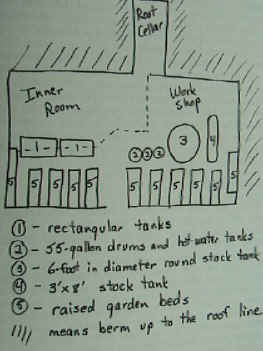 Root
Cellar
Inner
Room
Work
shop
-1- -1-
2 2 2
3
4
5 5 5 5 5 5 5 5 5 5 5
① - rectangular tanks
② - 55-gallon drums and hot-water tanks
③ - 6-foot in diameter round stock tank
④ - 3'x8' stock tank
⑤ - raised garden beds
//// means berm up to the roof line